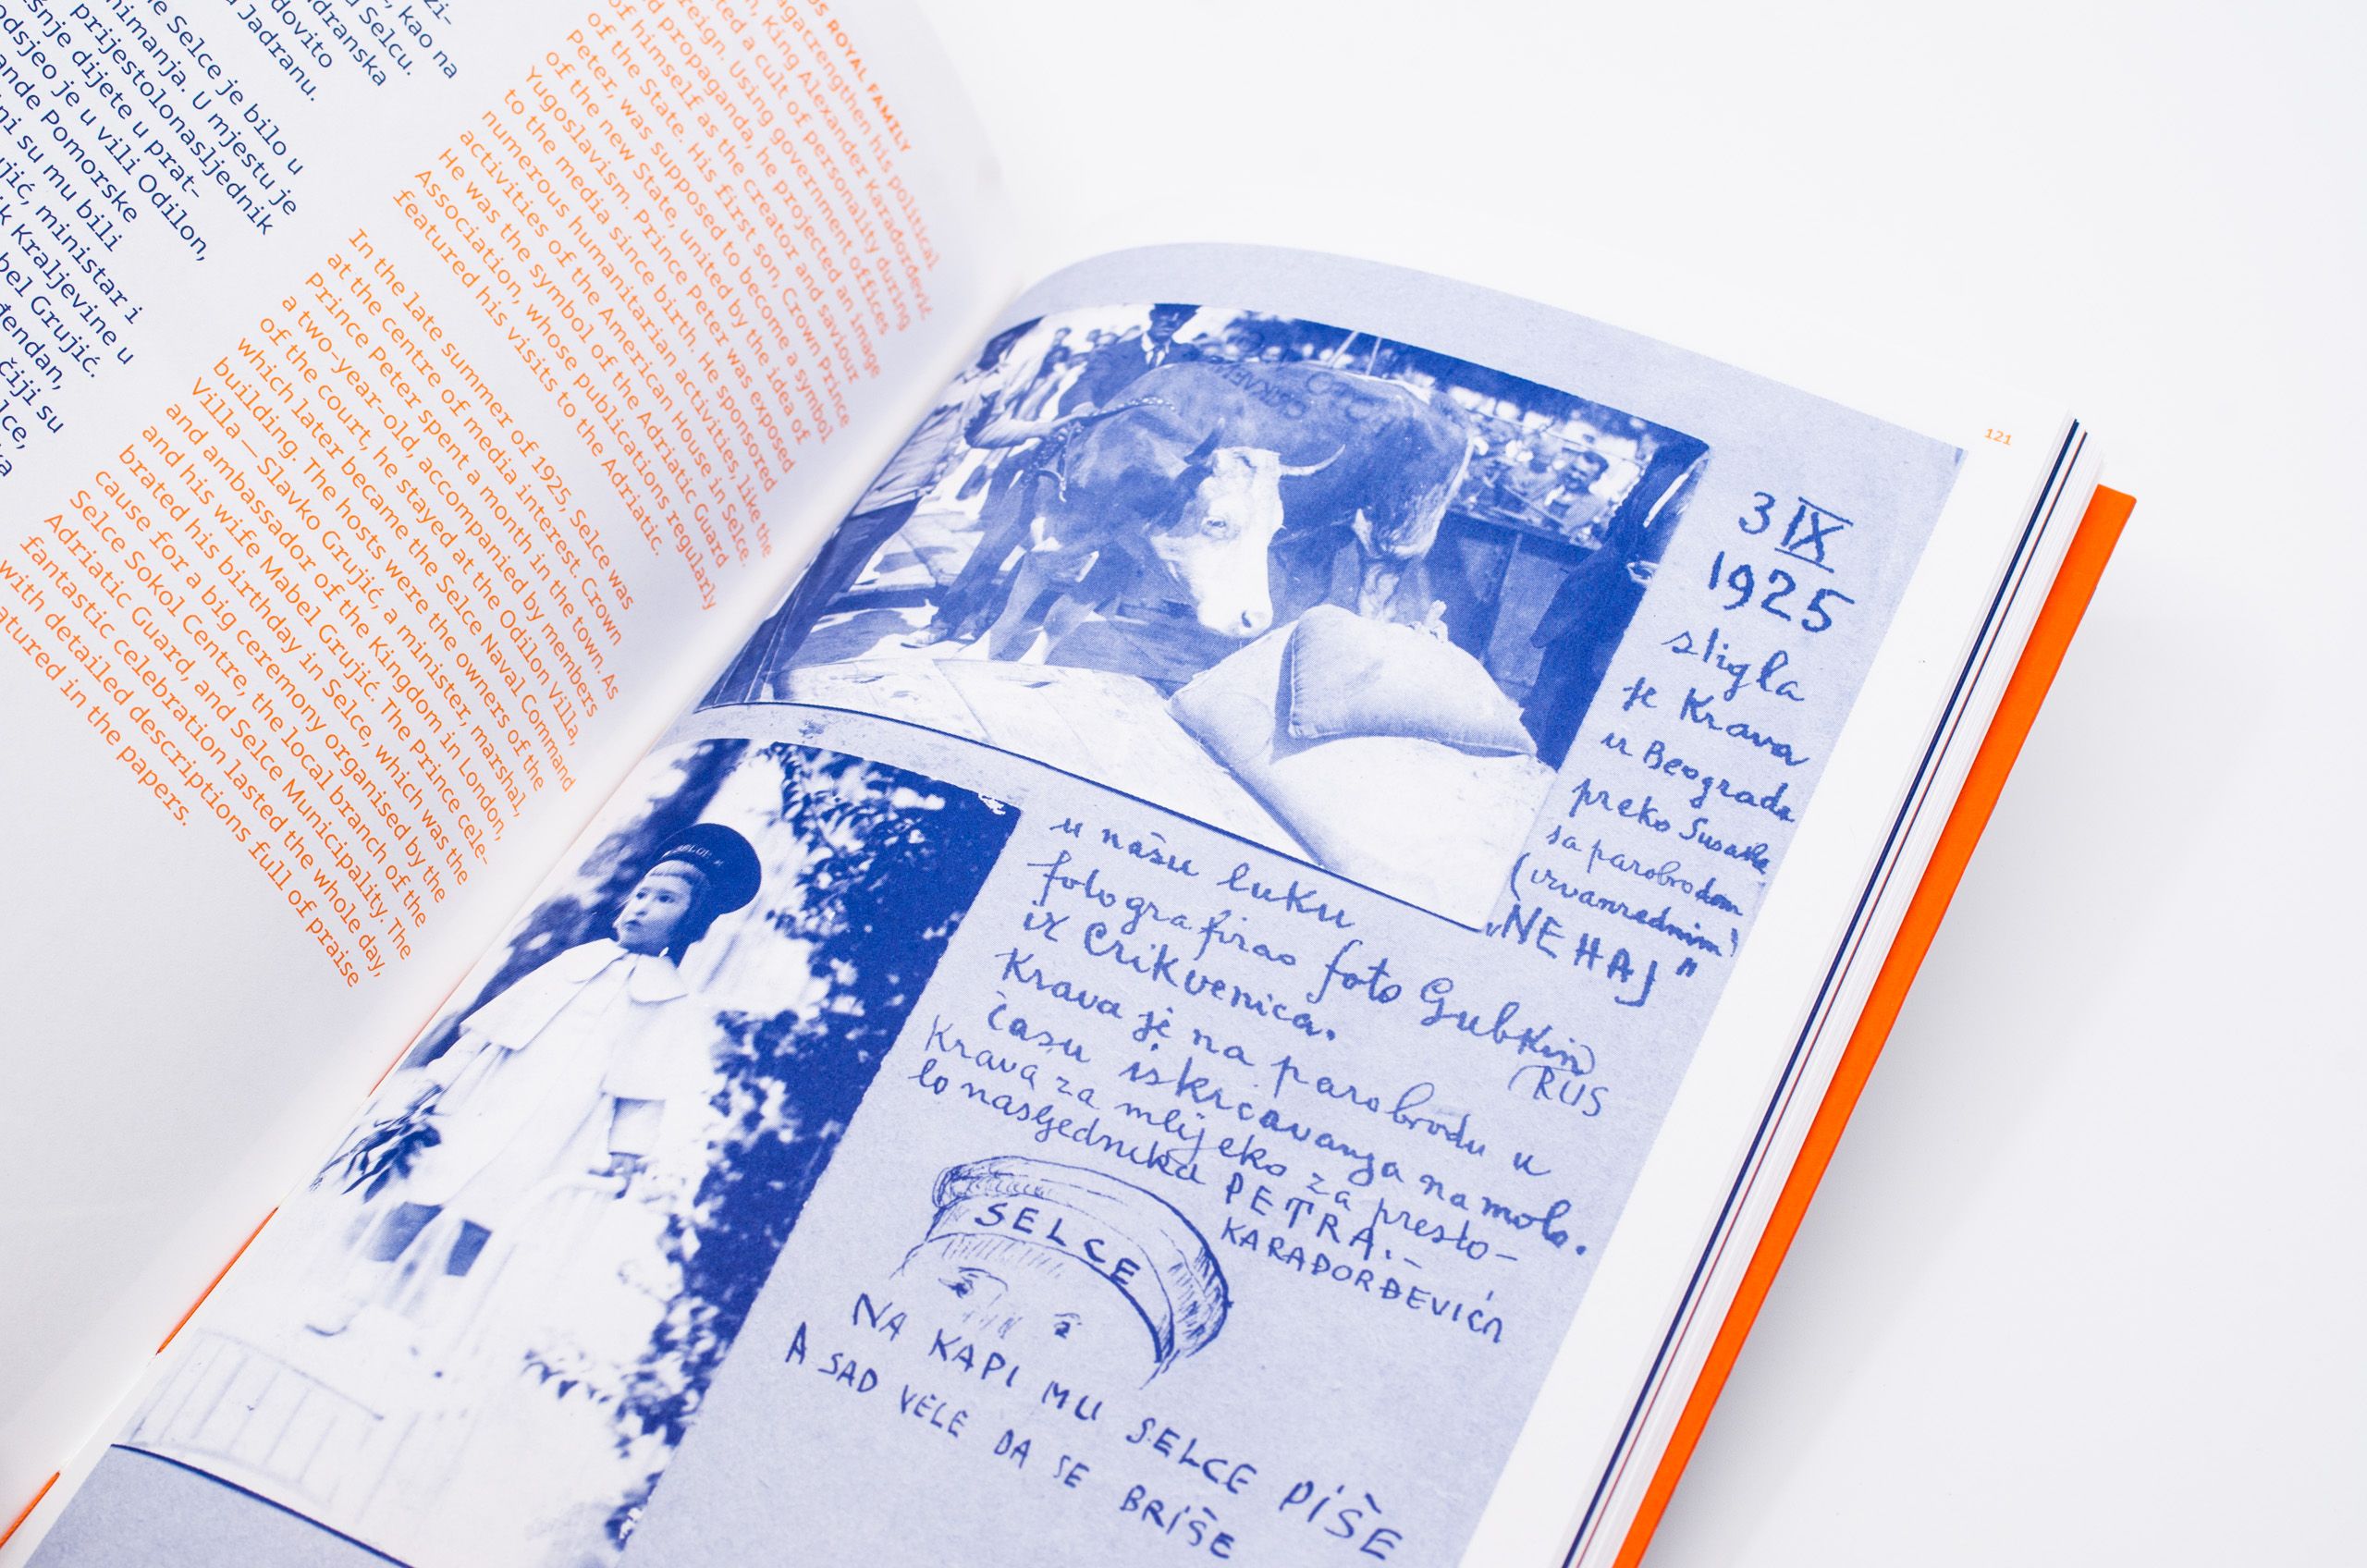 zi-
, kao na
u Selcu.
dranska
dovito
Jadranu.
e Selce je bilo u
nimanja. U mjestu je
prijestolonasljednik
šnje dijete u prat-
odsjeo je u vili Odilon,
ande Pomorske
ni su mu bili
ujić, ministar i
k Kraljevine u
bel Grujić.
đendan,
čiji su
lce,
ROYAL FAMILY
strengthen his political
King Alexander Karađorđević
ted a cult of personality during
reign. Using government offices
d propaganda, he projected an image
of himself as the creator and saviour
of the State. His first son, Crown Prince
Peter, was supposed to become a symbol
of the new State, united by the idea of
Yugoslavism. Prince Peter was exposed
to the media since birth. He sponsored
numerous humanitarian activities, like the
activities of the American House in Selce.
He was the symbol of the Adriatic Guard
Association, whose publications regularly
featured his visits to the Adriatic.
In the late summer of 1925, Selce was
at the centre of media interest. Crown
Prince Peter spent a month in the town. As
a two-year-old, accompanied by members
of the court, he stayed at the Odilon Villa,
which later became the Selce Naval Command
building. The hosts were the owners of the
Villa—Slavko Grujić, a minister, marshal,
and ambassador of the Kingdom in London,
and his wife Mabel Grujić. The Prince cele-
brated his birthday in Selce, which was the
cause for a big ceremony organised by the
Selce Sokol Centre, the local branch of the
Adriatic Guard, and Selce Municipality. The
fantastic celebration lasted the whole day,
with detailed descriptions full of praise
atured in the papers.
121
3 IX
1925
stigla
je Krava
iz Beograda
preko Sušaka
sa parobrodom
(izvanrednim)
„NEHAJ"
u našu luku
fotografirao foto Gubkin
RUS
iz Crikvenica.
Krava je na parobrodu u
času iskrcavanja na molo.
Krava za mlijeko za presto-
lo nasljednika PETRA.-
KARAĐORĐEVIĆA
SELCE
NA KAPI MU SELCE PIŠE
A SAD VELE DA SE BRIŠE